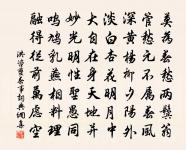 莫為春愁兩鬢翁
管愁元不屬春風
深黃楊柳夕陽外
淡白杏花明月中
大自在身天地
妙光明性同
鳴鳩乳燕相料理
融得從前萬慮空
洪咨夔春事詞典網書